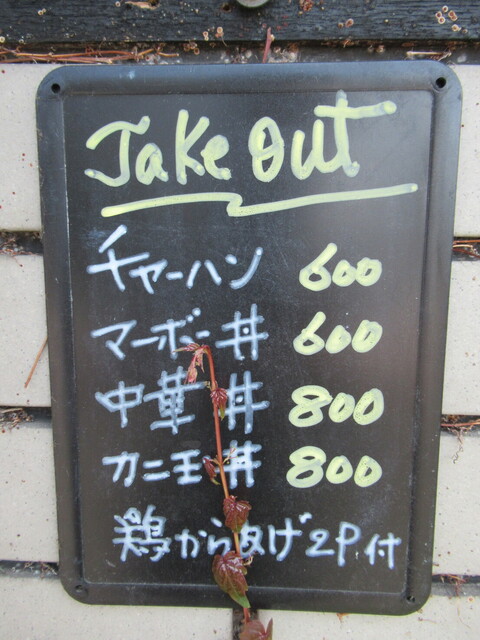 Take Out
チャーハン 600
マーボー丼 600
中華丼 800
カニ玉丼 800
鶏からあげ2P付